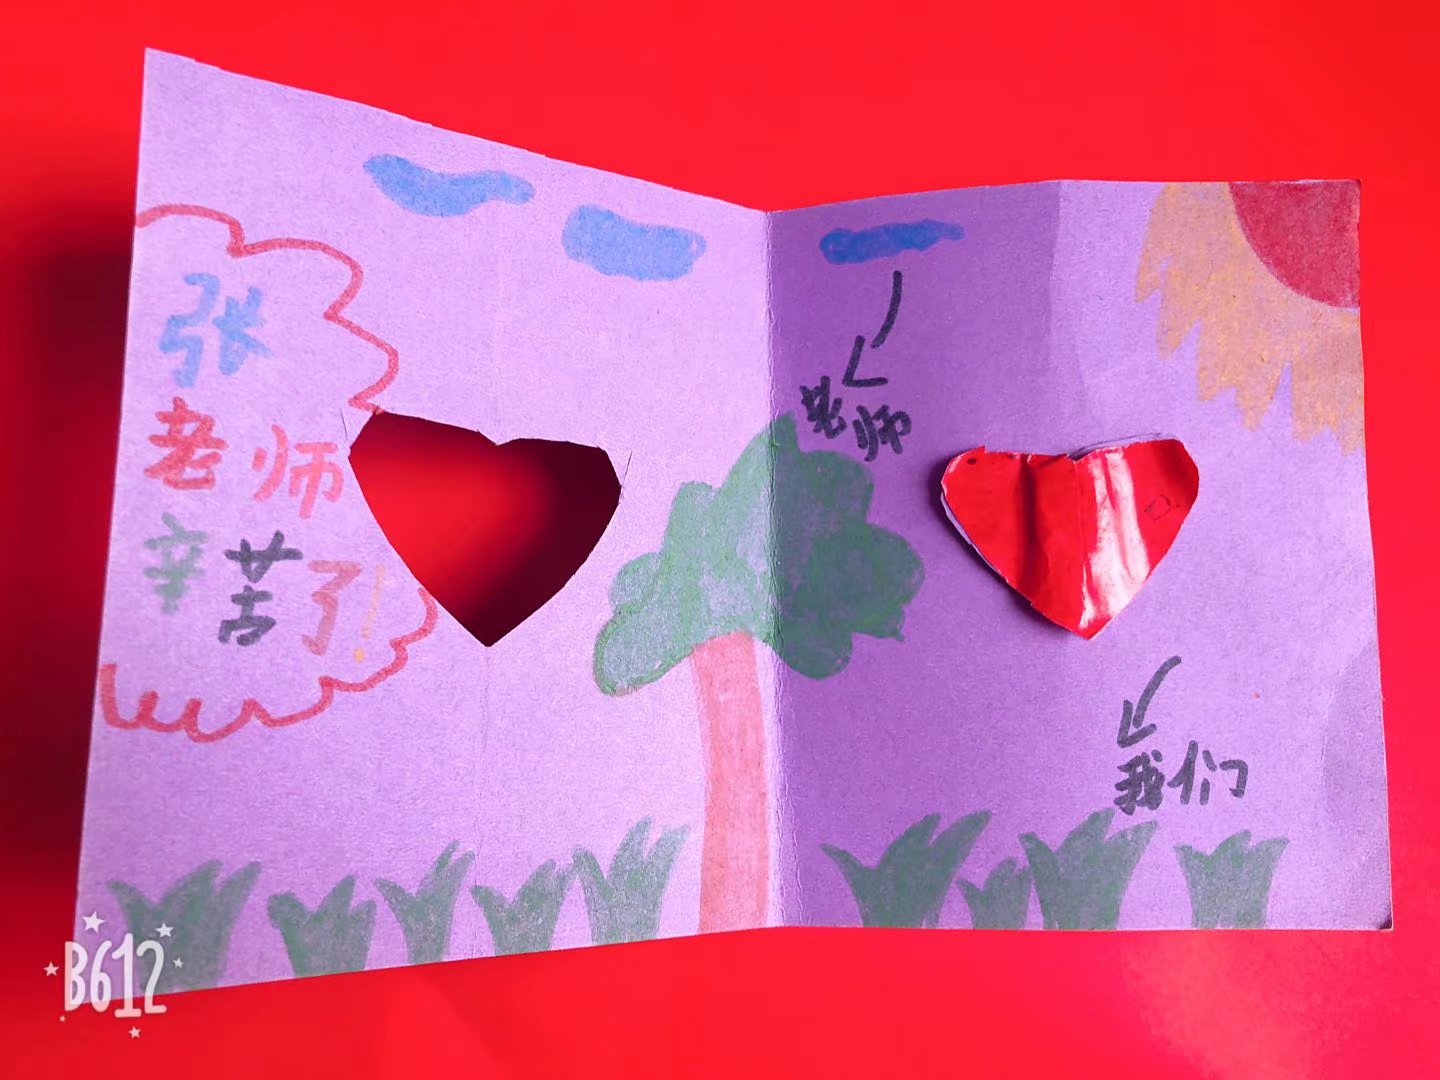 张
老师
辛苦了!
老师
我们
B612